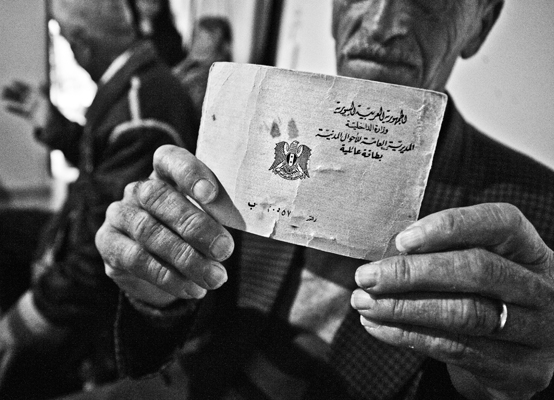 الجمهورية العربية السورية
وزارة الداخلية
المديرية العامة للأحوال المدنية
بطاقة عائلية
رقم
ب